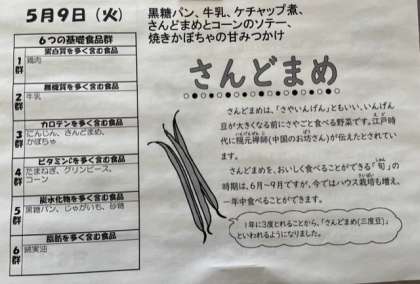 5月9日（火）
黒糖パン、牛乳、ケチャップ煮、
さんどまめとコーンのソテー、
焼きかぼちゃの甘みつかけ
6つの基礎食品群
蛋白質を多く含む食品
1群
鶏肉
無機質を多く含む食品
2群
牛乳
カロテンを多く含む食品
3群
にんじん、さんどまめ、
かぼちゃ
ビタミンCを多く含む食品
4群
たまねぎ、グリンピース、
コーン
炭水化物を多く含む食品
5群
黒糖パン、じゃがいも、砂糖
脂肪を多く含む食品
6群
綿実油
さんどまめ
さんどまめは、「さやいんげん」ともいい、いんげん
豆が大きくなる前にさやごと食べる野菜です。江戸時
代に隠元禅師(中国のお坊さん)が伝えたとされてい
ます。
さんどまめを、おいしく食べることができる「旬」の
時期は、6月～9月ですが、今ではハウス栽培も増え、
一年中食べることができます。
1年に3度とれることから、「さんどまめ(三度豆)」
といわれるようになりました。